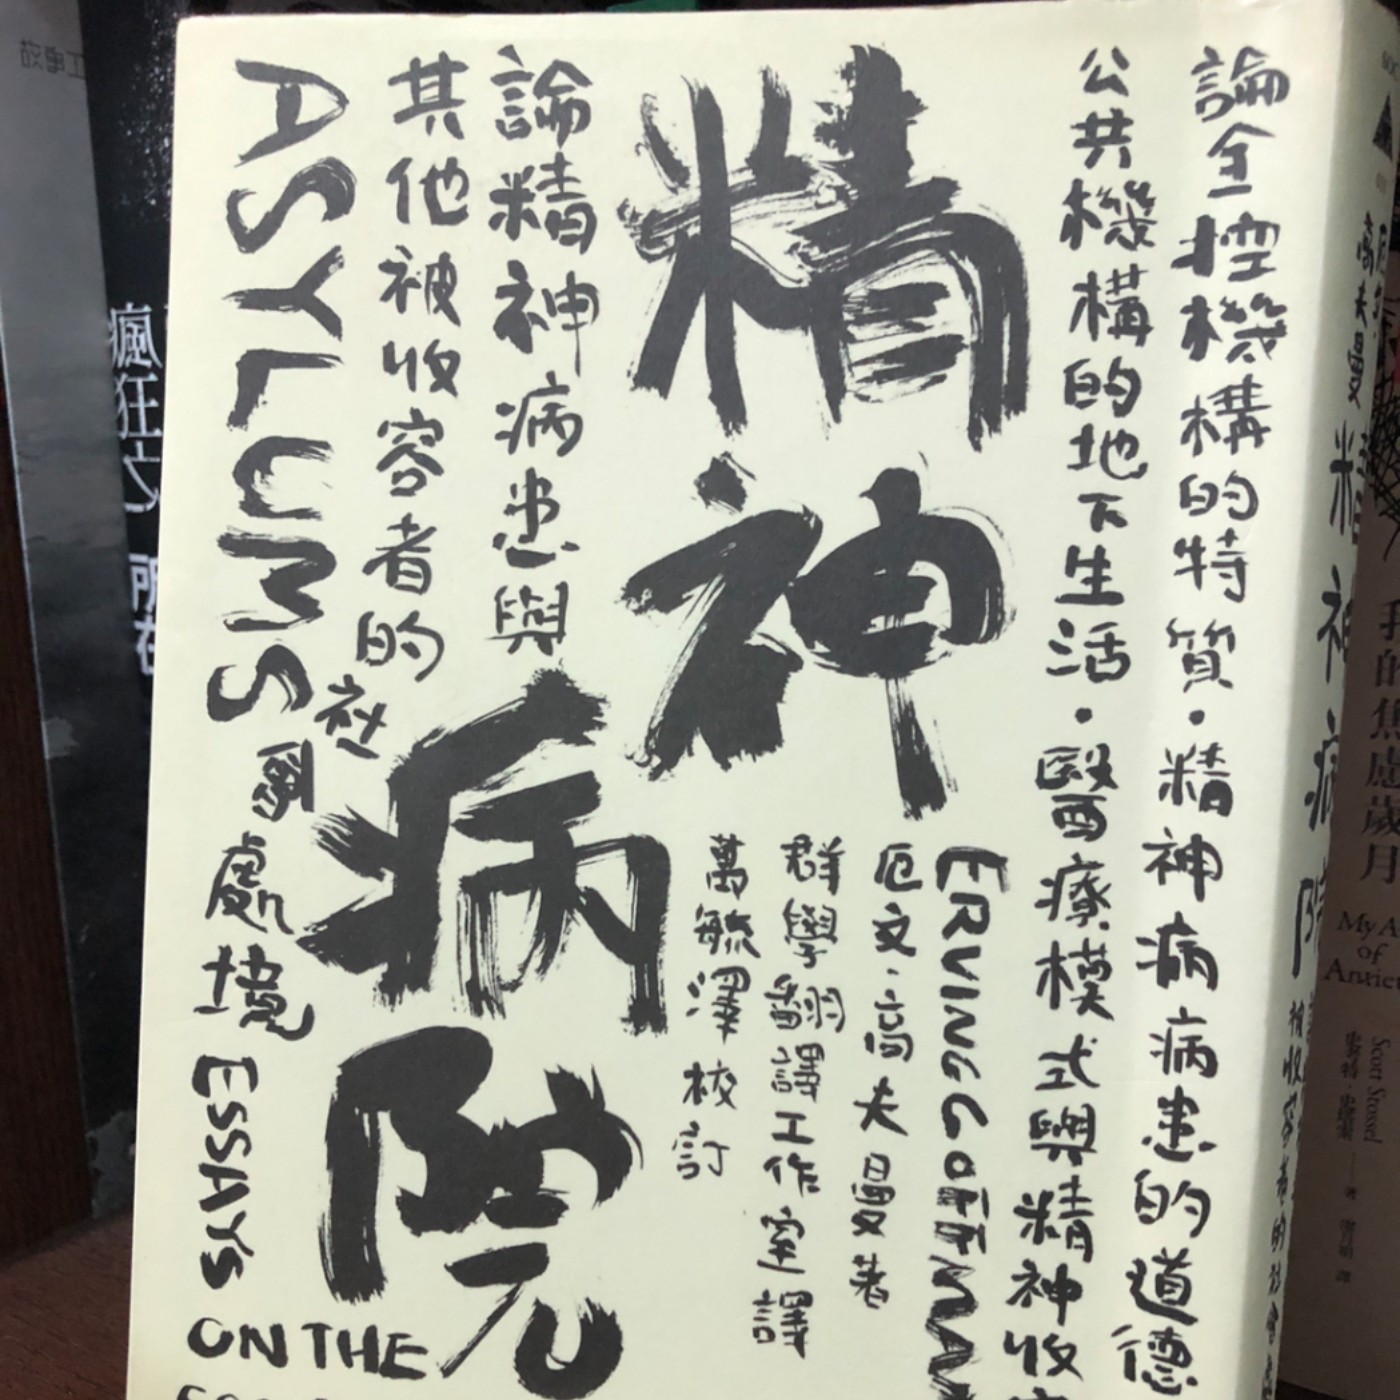 論全控機構的特質・精神病病患的道德
公共機構的地下生活・醫療模式與精神收
精神
病院
ERVING GOFFMAN
厄文・高夫曼著
群學翻譯工作室譯
萬毓澤 校訂
論精神病患與
其他被收容者的社會處境
ASYLUMS
ESSAYS
ON THE
高夫曼
精神病院
被收容者的社會
瘋狂
所在
故事工
我的焦慮歲月
My A
of
Anxiet
Scott Stossel
著
譯